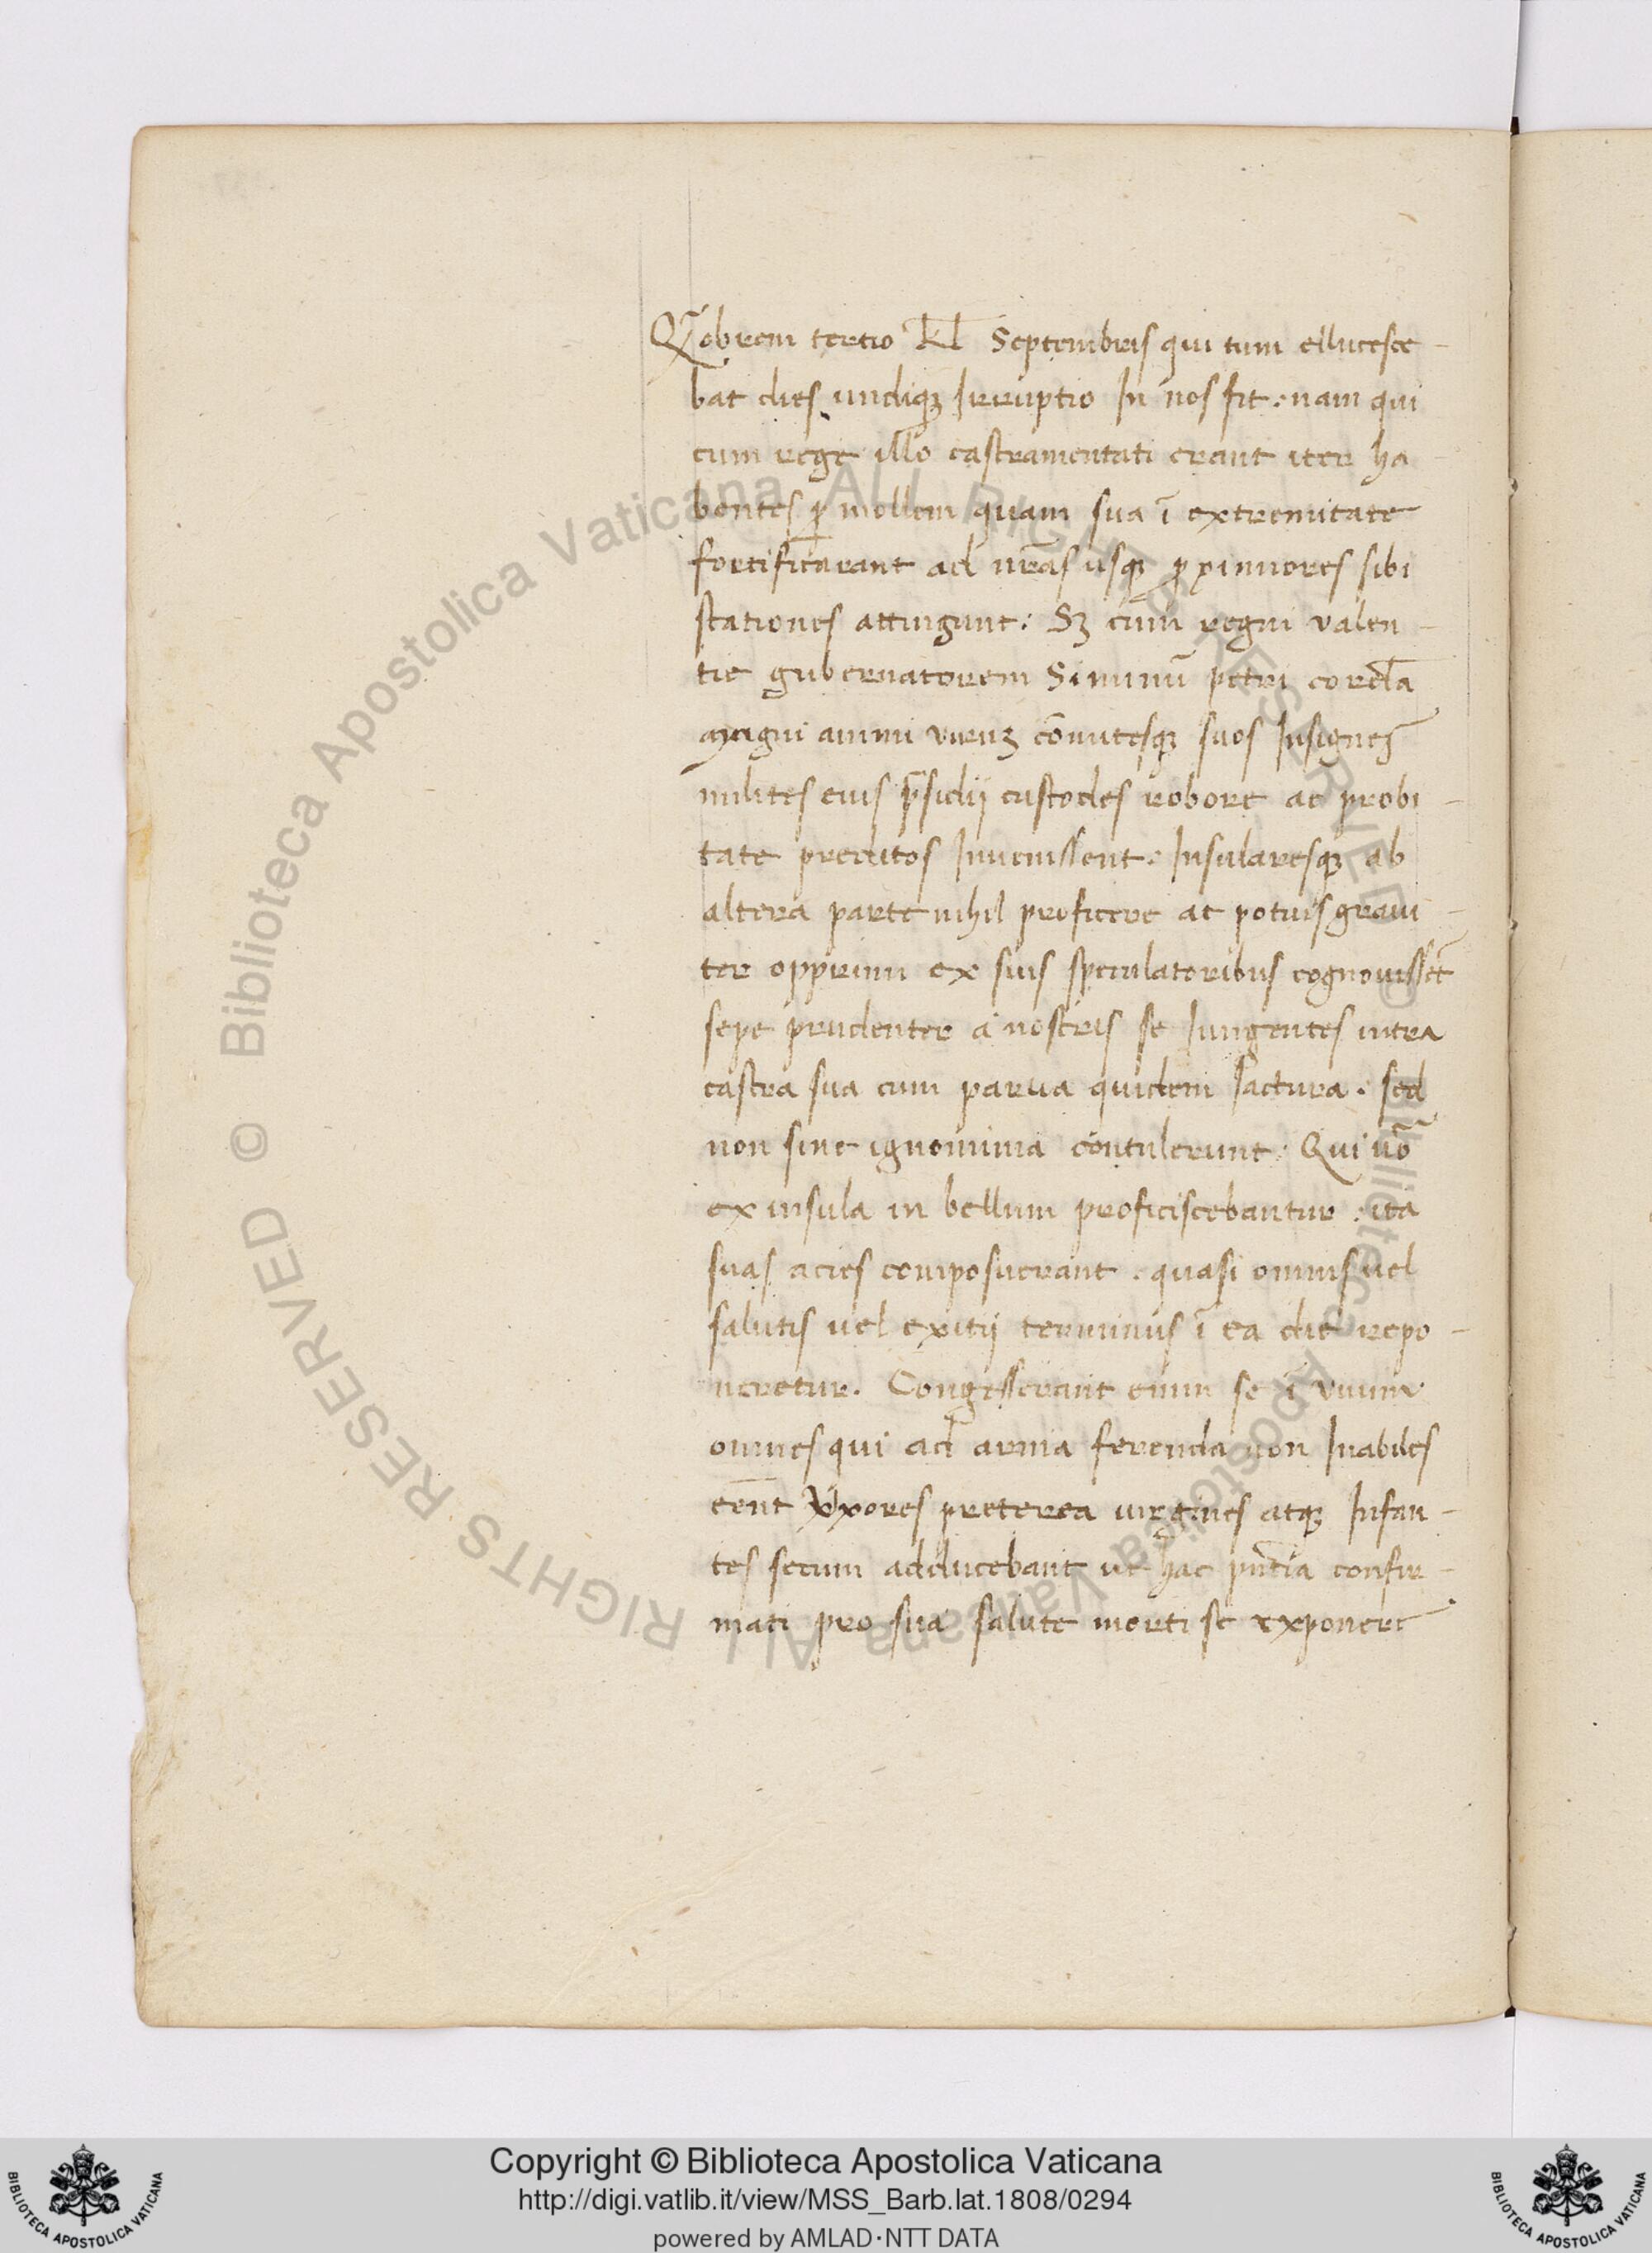 Qͣobrem tertio kl̅ Septembris qui tum ellucesce-
bat dies undiqꝫ Irruptio In nos fit. nam qui
cum rege illo castramentati erant iter ha
bentes ꝑ mollem quam sua ī extremitate
fortificarant ad nr̅as usqꝫ ꝓximiores sibi
stationes attingunt: Sꝫ cum regni valen-
tie gubernatorem Siminū petri corel̅a
magni animi viruꝫ co̅mitesqꝫ suos Insignes
milites eius p̅sidij custodes robore ac probi-
tate preditos Inuenissent. Insularesqꝫ ab
altera parte nihil proficere ac potius graui-
ter opprimi ex suis speculatoribus cognouisse̅t
sepe prudenter a nostris se Iungentes intra
castra sua cum parua quidem Iactura. sed
non sine ignominia contulerunt. Qui uo̅
ex insula in bellum proficiscebantur. ita
suas acies composuerant. quasi omnis uel
salutis uel exitij terminus ī ea die repo-
neretur. Congesserant enim se ī vnum
omnes qui ad arma ferenda non Inabiles
eēnt Vxores preterea uirgines atqꝫ Infan-
tes secum adducebant ut hac pn̅tia confir-
mati pro sua salute morti se exponere
Copyright © Biblioteca Apostolica Vaticana
http://digi.vatlib.it/view/MSS_Barb.lat.1808/0294
powered by AMLAD·NTT DATA
BIBLIOTECA APOSTOLICA VATICANA
BIBLIOTECA APOSTOLICA VATICANA
© Biblioteca Apostolica Vaticana ALL RIGHTS RESERVED © Biblioteca Apostolica Vaticana ALL RIGHTS RESERVED